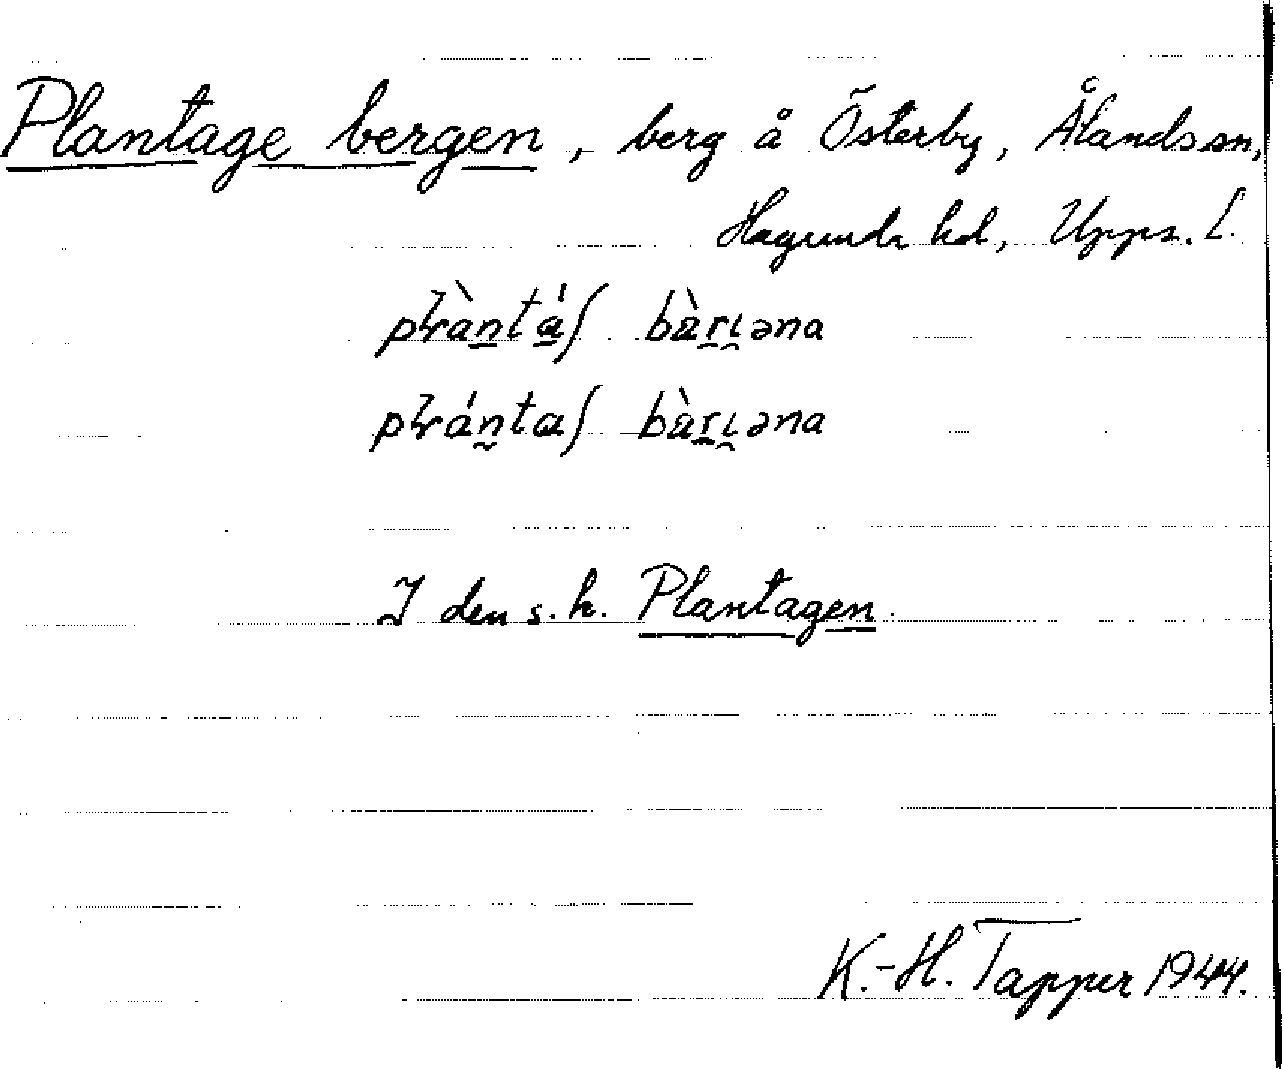 Plantage bergen, berg å Österby, Ålands sn,
Hagunda hd, Upps. l.
plràntá̱ʃ bàṟı̯əna
plrántaʃ bàṟı̯əna
I den s.k. Plantagen.
K.-H. Tapper 1944.